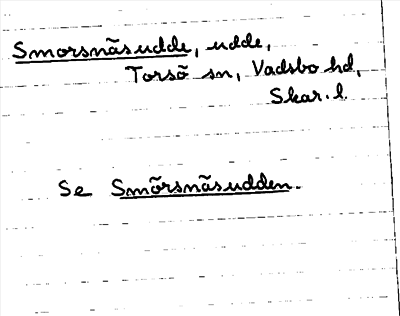 Smorsnäsudde, udde,
Torsö sn, Vadsbo hd,
Skar. l.
Se Smörsnäsudden.